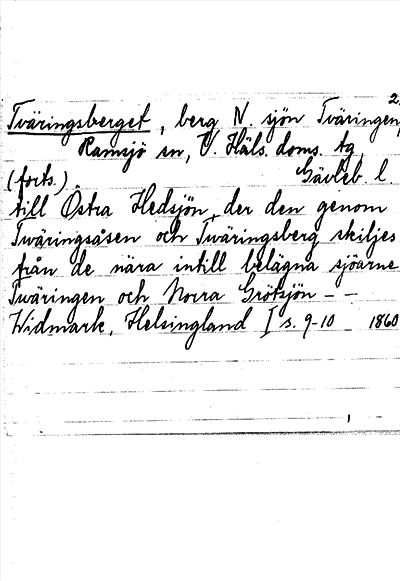 2.
Tväringsberget, berg N. sjön Tväringen,
Ramsjö sn, V. Häls. doms. tg
(forts.) Gävleb. l.
till Östra Hedsjön, der den genom
Twäringsåsen och Twäringsberg skiljes
från de nära intill belägna sjöarne
Twäringen och Norra Grötsjön – –
Widmark, Helsingland I s. 9-10 1860